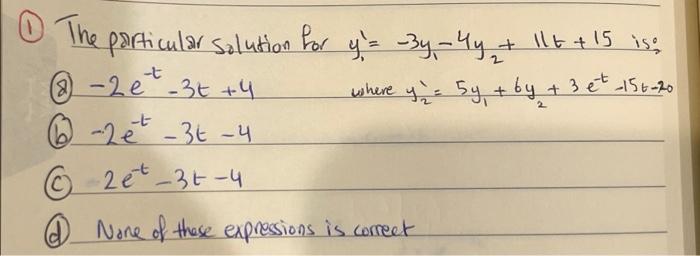 ① The particular solution for y₁' = -3y₁ - 4y₂ + 11t + 15 is:
ⓐ -2e^-t - 3t + 4 where y₂' = 5y₁ + 6y₂ + 3e^-t - 15t - 20
ⓑ -2e^-t - 3t - 4
ⓒ 2e^-t - 3t - 4
ⓓ None of these expressions is correct